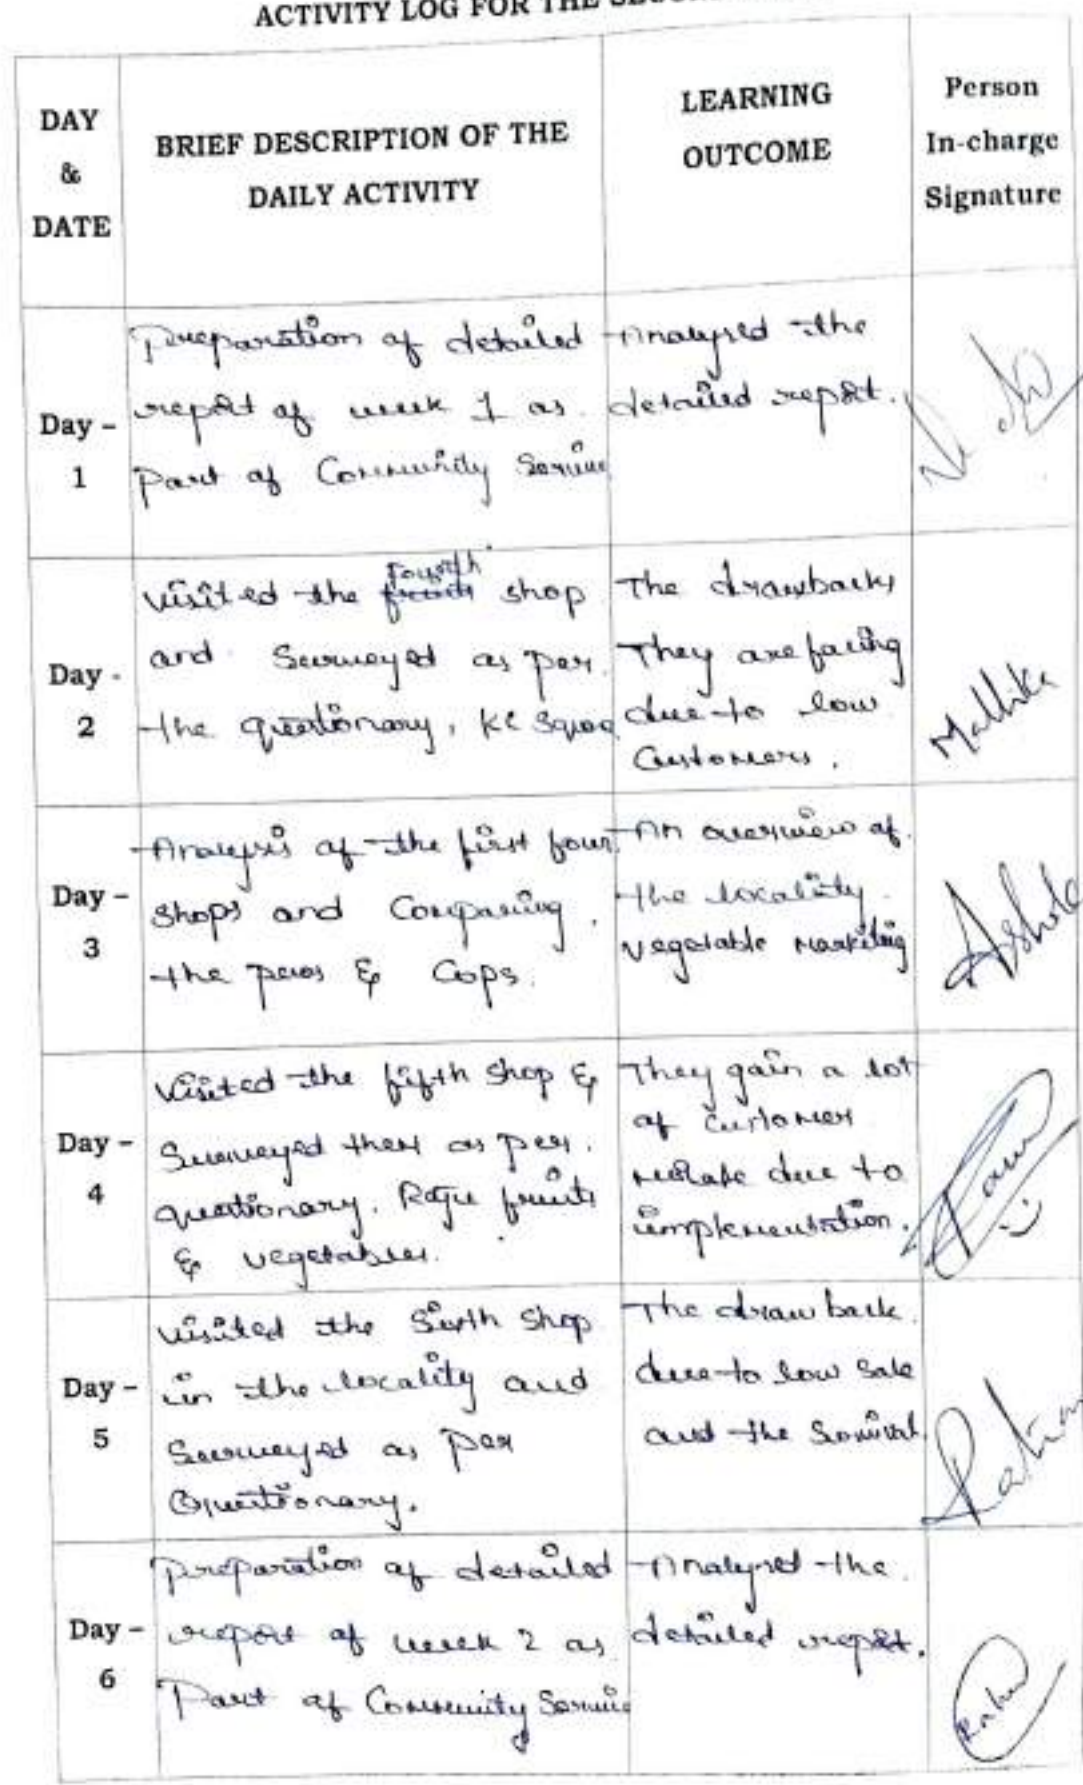 ACTIVITY LOG FOR THE
DAY
&
DATE
BRIEF DESCRIPTION OF THE
DAILY ACTIVITY
LEARNING
OUTCOME
Person
In-charge
Signature
Day - 1
Preparation of detailed
report of week 1 as
Part of Community Service
Analysed the
detailed report.
Day - 2
Visited the fourth shop
and Surveyed as per
the questionary, KC
The drawbacks
They are facing
due to low
Customers.
Mallika
Day - 3
Analysis of the first four
shops and Comparing
the pros & Cops.
An overview of
the locality
vegetable marketing
Ashok
Day - 4
Visited the fifth shop &
Surveyed them as per
questionary. Raju fruits
& vegetables.
They gain a lot
of customer
due to
implementation.
Day - 5
Visited the Sixth shop
in the locality and
Surveyed as per
Questionary.
The draw back
due to low sale
and the Survival
Day - 6
Preparation of detailed
report of week 2 as
Part of Community Service
Analysed the
detailed report.